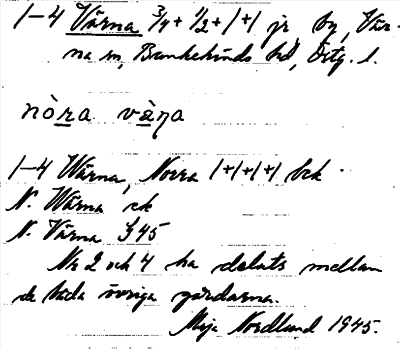 1–4 Värna 3/4 + 1/2 + 1 + 1 jr, by, Vår-
na sn, Bankekinds hd, Östg. l.
nòra vàŋa
1–4 Wårna, Norra 1+1+1+1 bek
N. Wårna ek
N. Värna J45
Nr 2 och 4 ha delats mellan
de båda övriga gårdarna.
Maja Nordlund 1945.